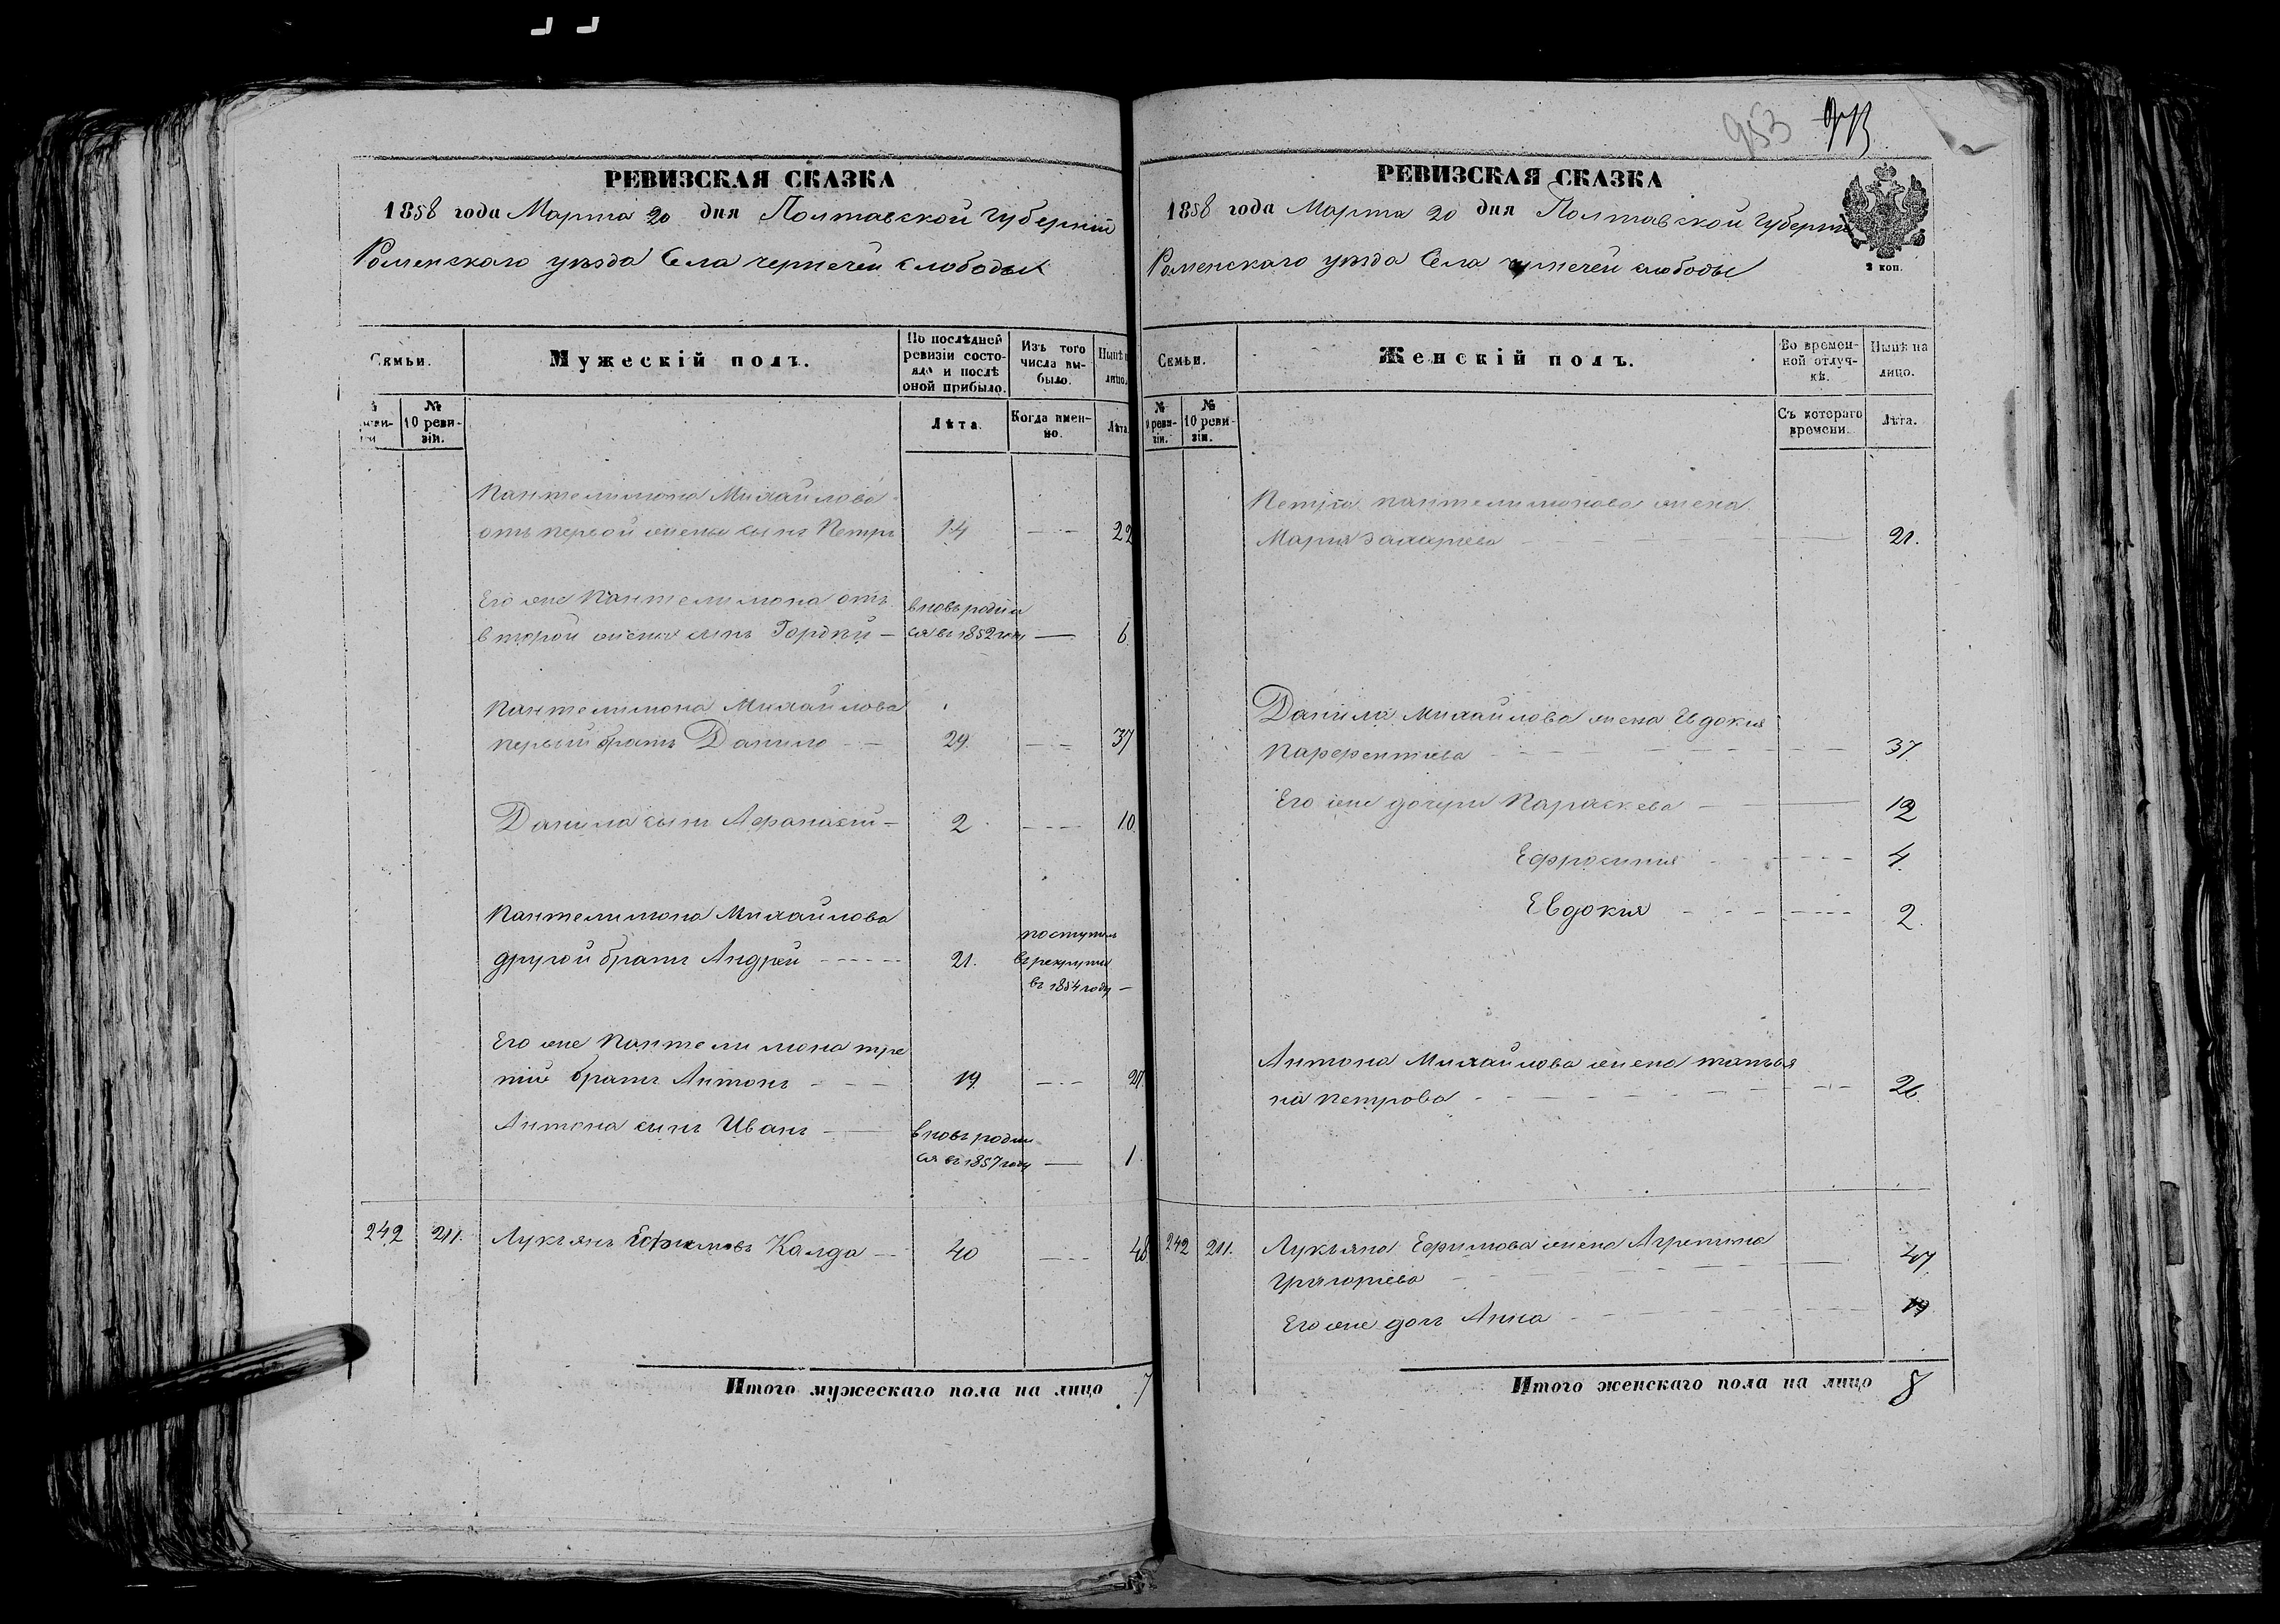 953
РЕВИЗСКАЯ СКАЗКА
1858 года Марта 20 дня Полтавской Губерніи
Роменскаго уѣзда Села чернечей слободы
Семьи.
Мужескій полъ.
По послѣдней ревизіи состояло и послѣ оной прибыло.
Изъ того числа выбыло.
Нынѣ на лицо.
№ 10 ревизіи.
Лѣта.
Когда именно.
Лѣта.
Пантелимона Михайлова
отъ первой жены сынъ Петръ 14 — 22
Его же Пантелимона отъ
второй жены сынъ Гордѣй — вновь родился въ 1852 году — 6
Пантелимона Михайлова
первый братъ Данило — 29. — 37
Данила сынъ Афанасій — 2 — 10.
Пантелимона Михайлова
другой братъ Андрей — 21. поступилъ въ рекруты въ 1854 году —
Его же Пантелимона тре
тій братъ Антонъ — 19. — 27
Антона сынъ Иванъ — вновь родился въ 1857 году — 1.
242 211. Лукъянъ Ефимовъ Калда — 40 — 48
Итого мужескаго пола на лицо 7
РЕВИЗСКАЯ СКАЗКА
1858 года Марта 20 дня Полтавской Губерніи
Роменскаго уѣзда Села чернечей слободы
2 коп.
Семьи.
Женскій полъ.
Во временной отлучкѣ.
Нынѣ на лицо.
№ 9 ревизіи.
№ 10 ревизіи.
Съ котораго времени.
Лѣта.
Петра Пантелимонова жена
Марія Захарiева — 21.
Данила Михайлова жена Евдокия
Парфентиева — 37.
Его же дочери Параскева — 12
Ефросиния — 4.
Евдокия — 2.
Антона Михайлова жена татья
на Петрова — 26.
242 211. Лукъяна Ефимова жена Агрепина
Григориева — 47
Его же дочь Анна — 19.
Итого женскаго пола на лицо 8